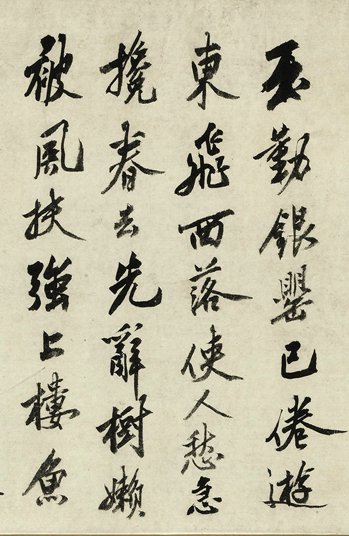 玉勒銀罌已倦遊
東飛西落使人愁急
攙春去先辭樹嬾
被風扶強上樓魚